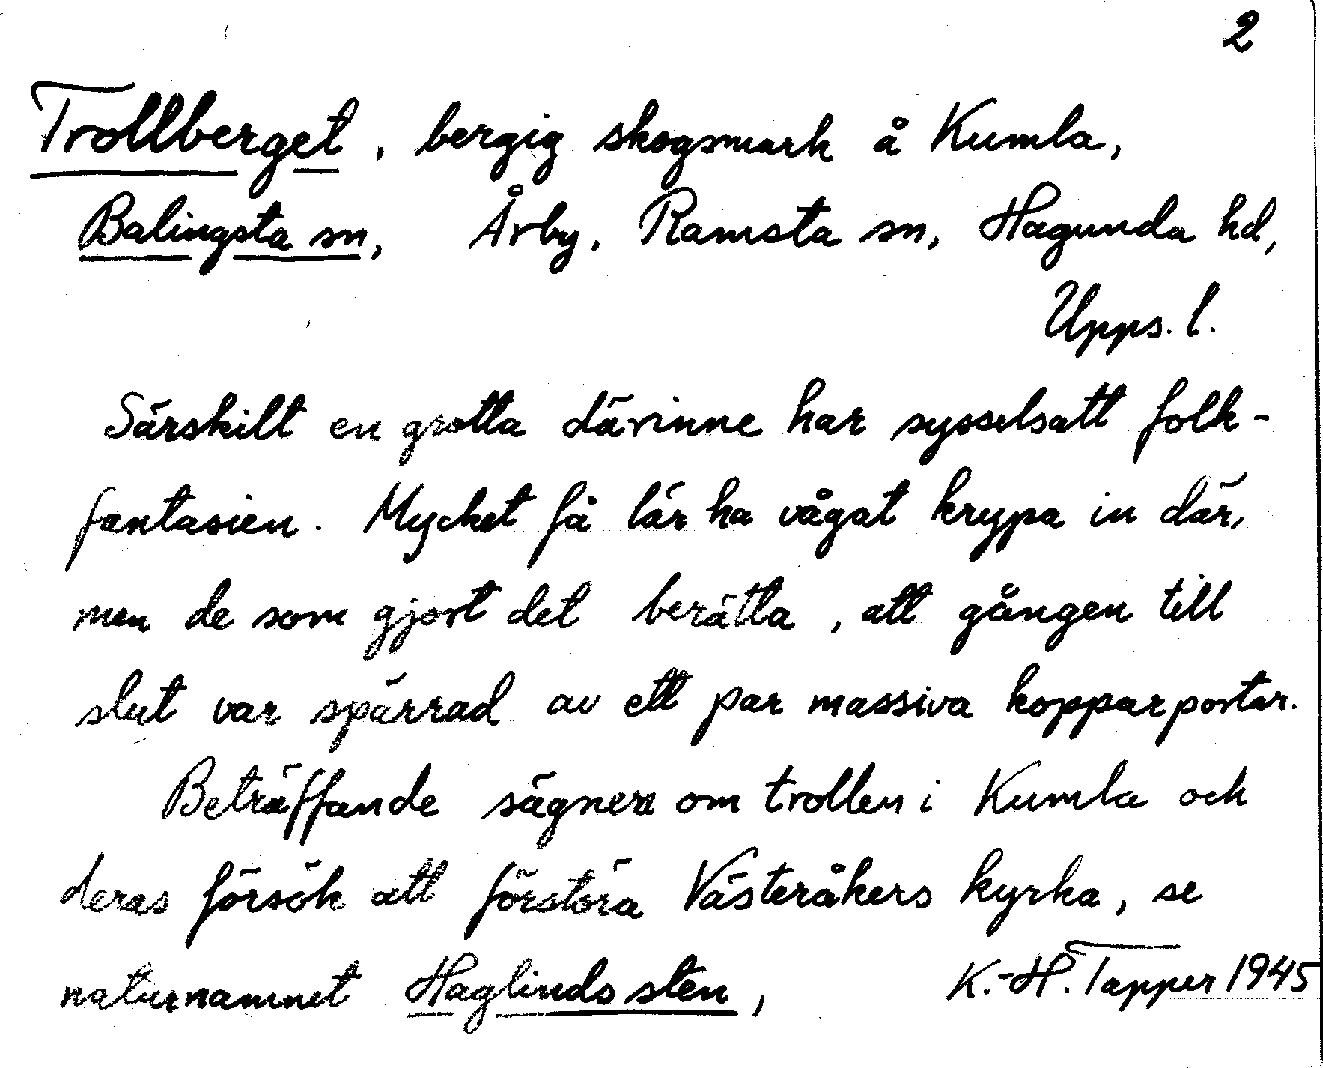 2
Trollberget, bergig skogsmark å Kumla,
Balingsta sn, Årby, Ramsta sn, Hagunda hd,
Upps. l.
Särskilt en grotta därinne har sysselsatt folk-
fantasien. Mycket få lär ha vågat krypa in där,
men de som gjort det berätta, att gången till
slut var spärrad av ett par massiva kopparportar.
Beträffande sägnera om trollen i Kumla och
deras försök att förstöra Västeråkers kyrka, se
naturnamnet Haglinds sten, K.-H. Tapper 1945